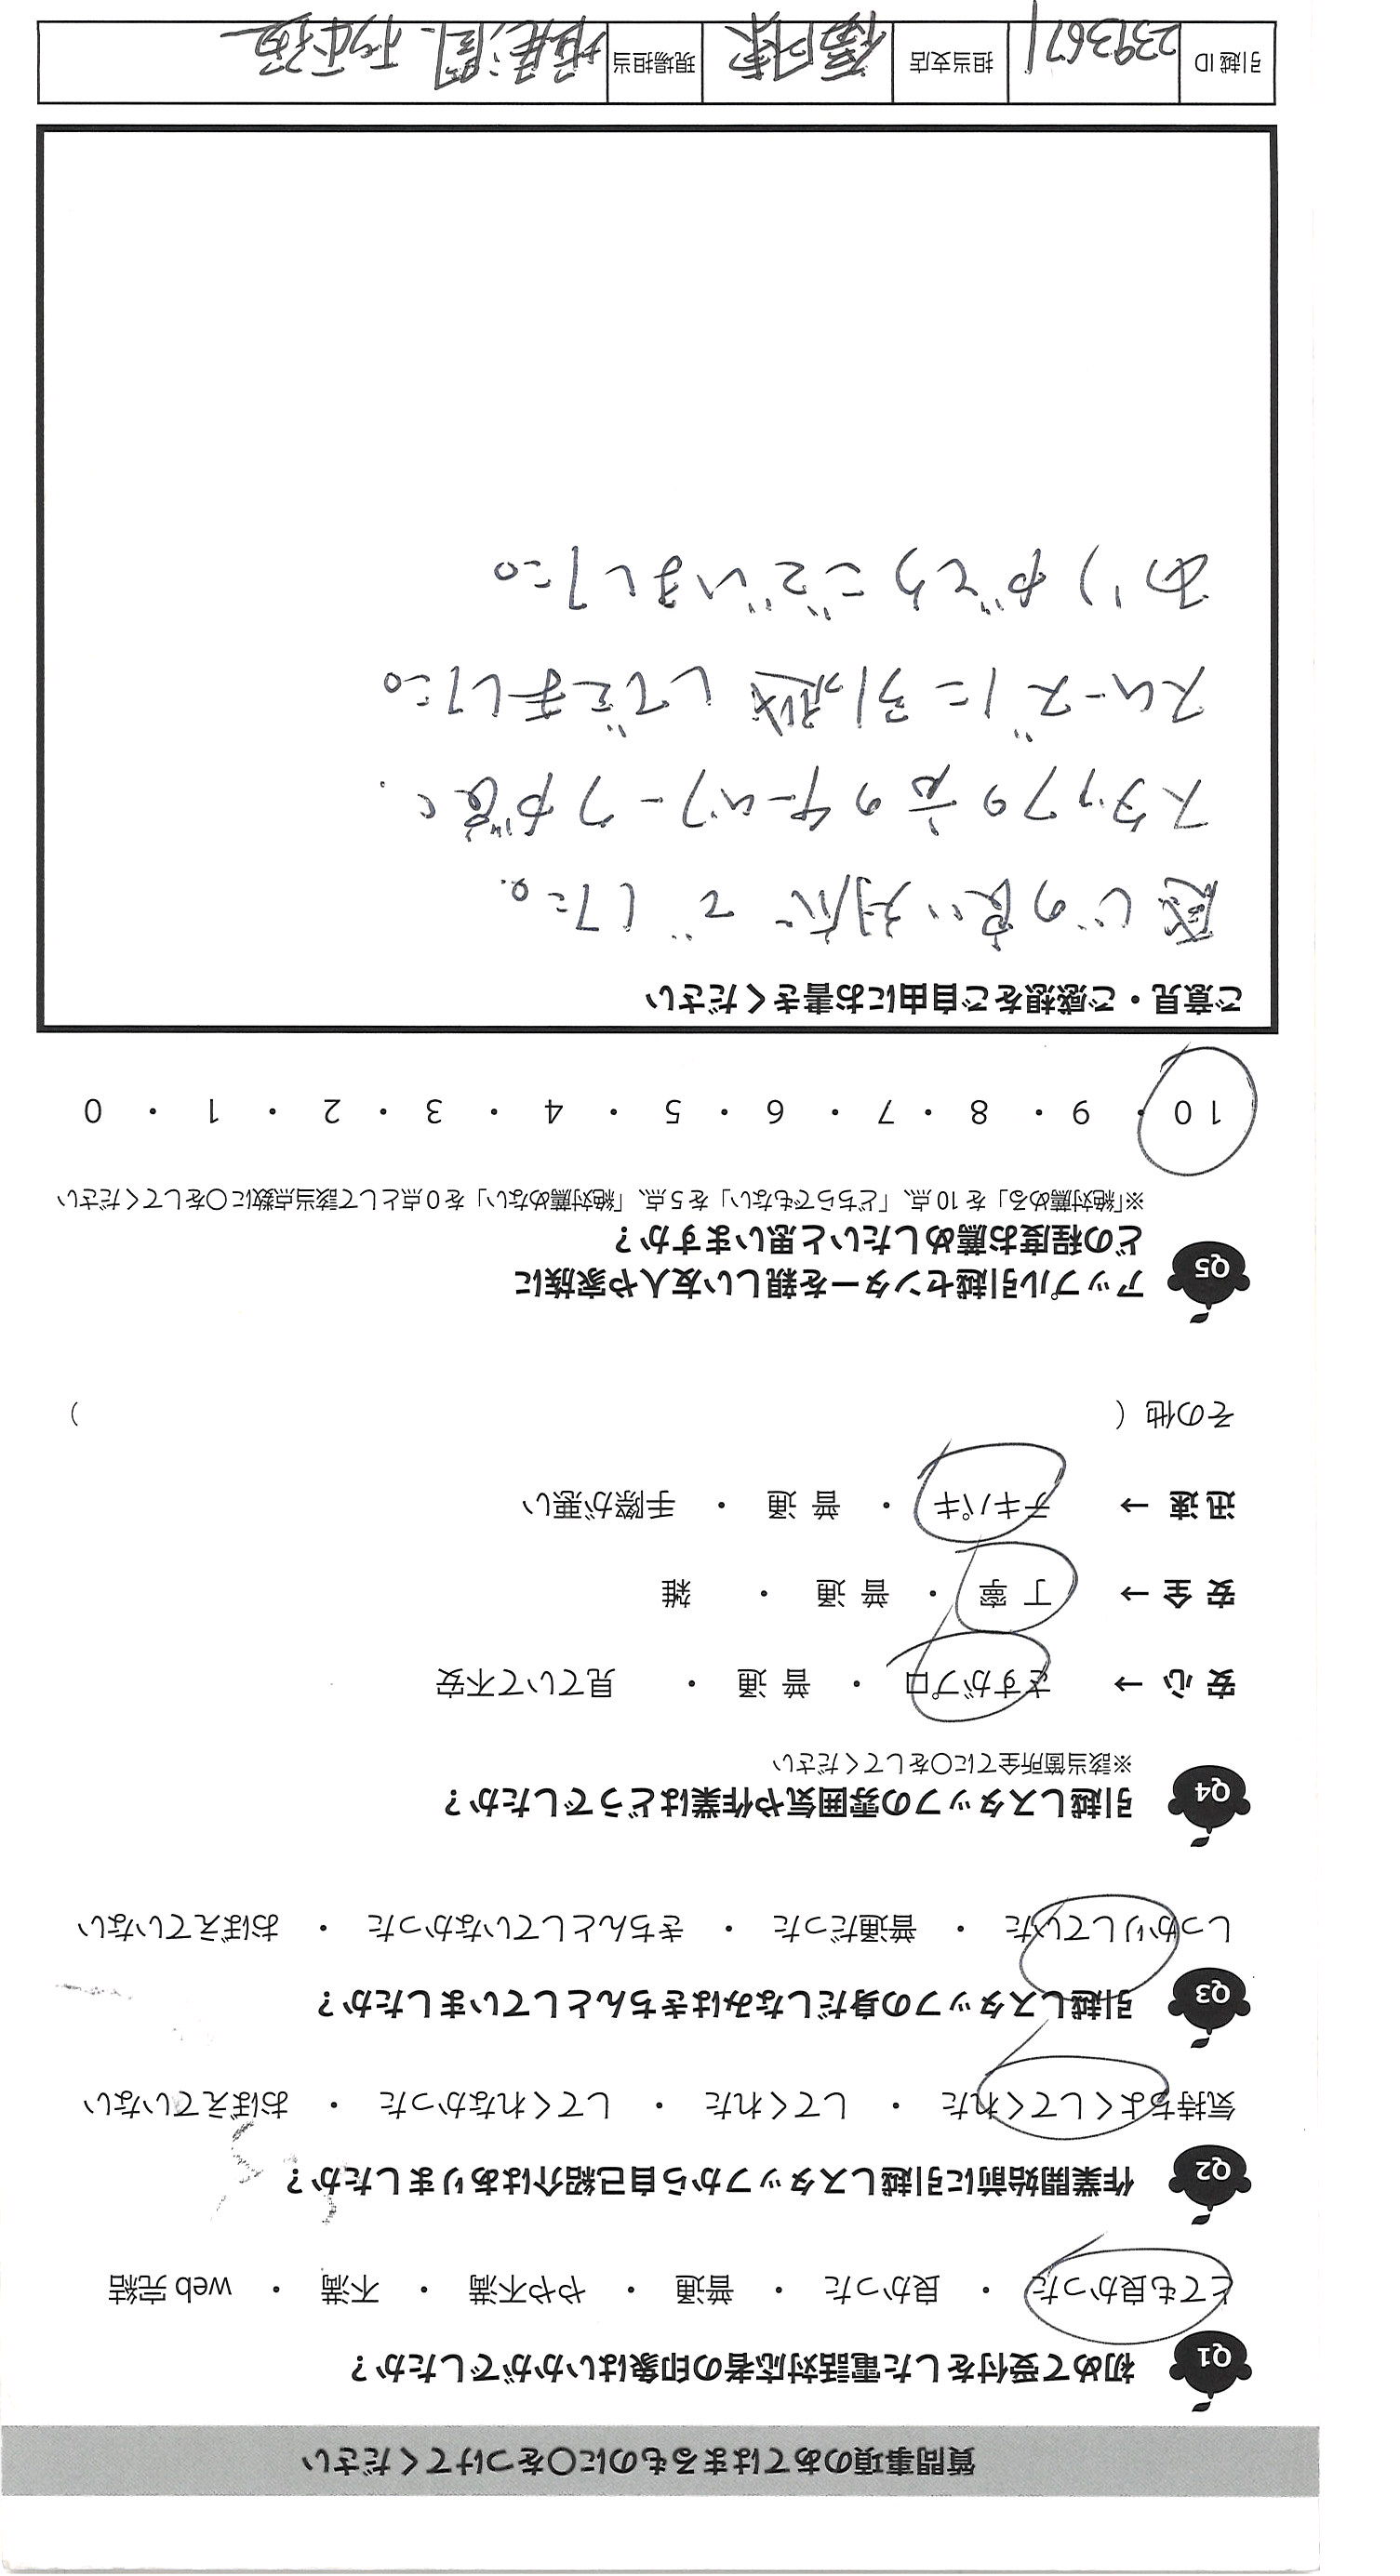 質問事項のあてはまるものに〇をつけてください
Q1 初めて受付をした電話対応者の印象はいかがでしたか？
とても良かった ・ 良かった ・ 普通 ・ やや不満 ・ 不満 ・ web 完結
Q2 作業開始前に引越しスタッフから自己紹介はありましたか？
気持ちよくしてくれた ・ してくれた ・ してくれなかった ・ おぼえていない
Q3 引越しスタッフの身だしなみはきちんとしていましたか？
しっかりしていた ・ 普通だった ・ きちんとしていなかった ・ おぼえていない
Q4 引越しスタッフの雰囲気や作業はどうでしたか？
※該当箇所全てに〇をしてください
安 心 → さすがプロ ・ 普 通 ・ 見ていて不安
安 全 → 丁 寧 ・ 普 通 ・ 雑
迅 速 → テキパキ ・ 普 通 ・ 手際が悪い
その他（ ）
Q5 アップル引越センターを親しい友人や家族に
どの程度お薦めしたいと思いますか？
※「絶対薦める」を 10 点、「どちらでもない」を 5 点、「絶対薦めない」を 0 点として該当点数に〇をしてください
10 ・ 9 ・ 8 ・ 7 ・ 6 ・ 5 ・ 4 ・ 3 ・ 2 ・ 1 ・ 0
ご意見・ご感想をご自由にお書きください
感じの良い対応でした。
スタッフの方のチームワークが良く
スムーズに引越しできました。
ありがとうございました。
引越 ID 2393671 担当支店 現場担当